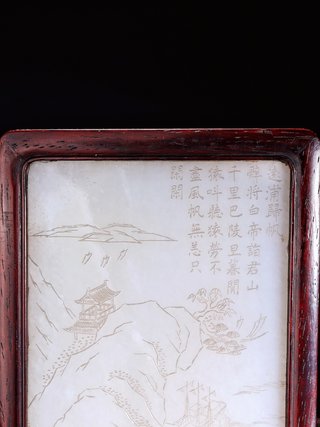 遠浦歸帆
辭將白帝詣君山
千里巴陵旦暮間
猿叫聽猿勞不
盡風帆無恙只
間關